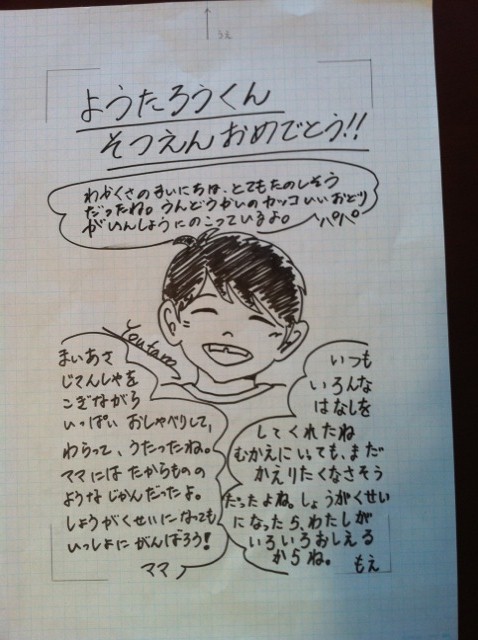 うえ
ようたろうくん
そつえんおめでとう!!
わかくさのまいにちは、とてもたのしそう
だったね。うんどうかいのカッコいいおどり
がいんしょうにのこっているよ。
パパ
Youtaro
まいあさ
じてんしゃを
こぎながら
いっぱい おしゃべりして、
わらって、うたったね。
ママには たからものの
ようなじかんだったよ。
しょうがくせいになっても
いっしょに がんばろう!
ママ
いつも
いろんな
はなしを
してくれたね
むかえにいっても、まだ
かえりたくなさそう
だったよね。しょうがくせい
になったら、わたしが
いろいろおしえる
からね。
もえ